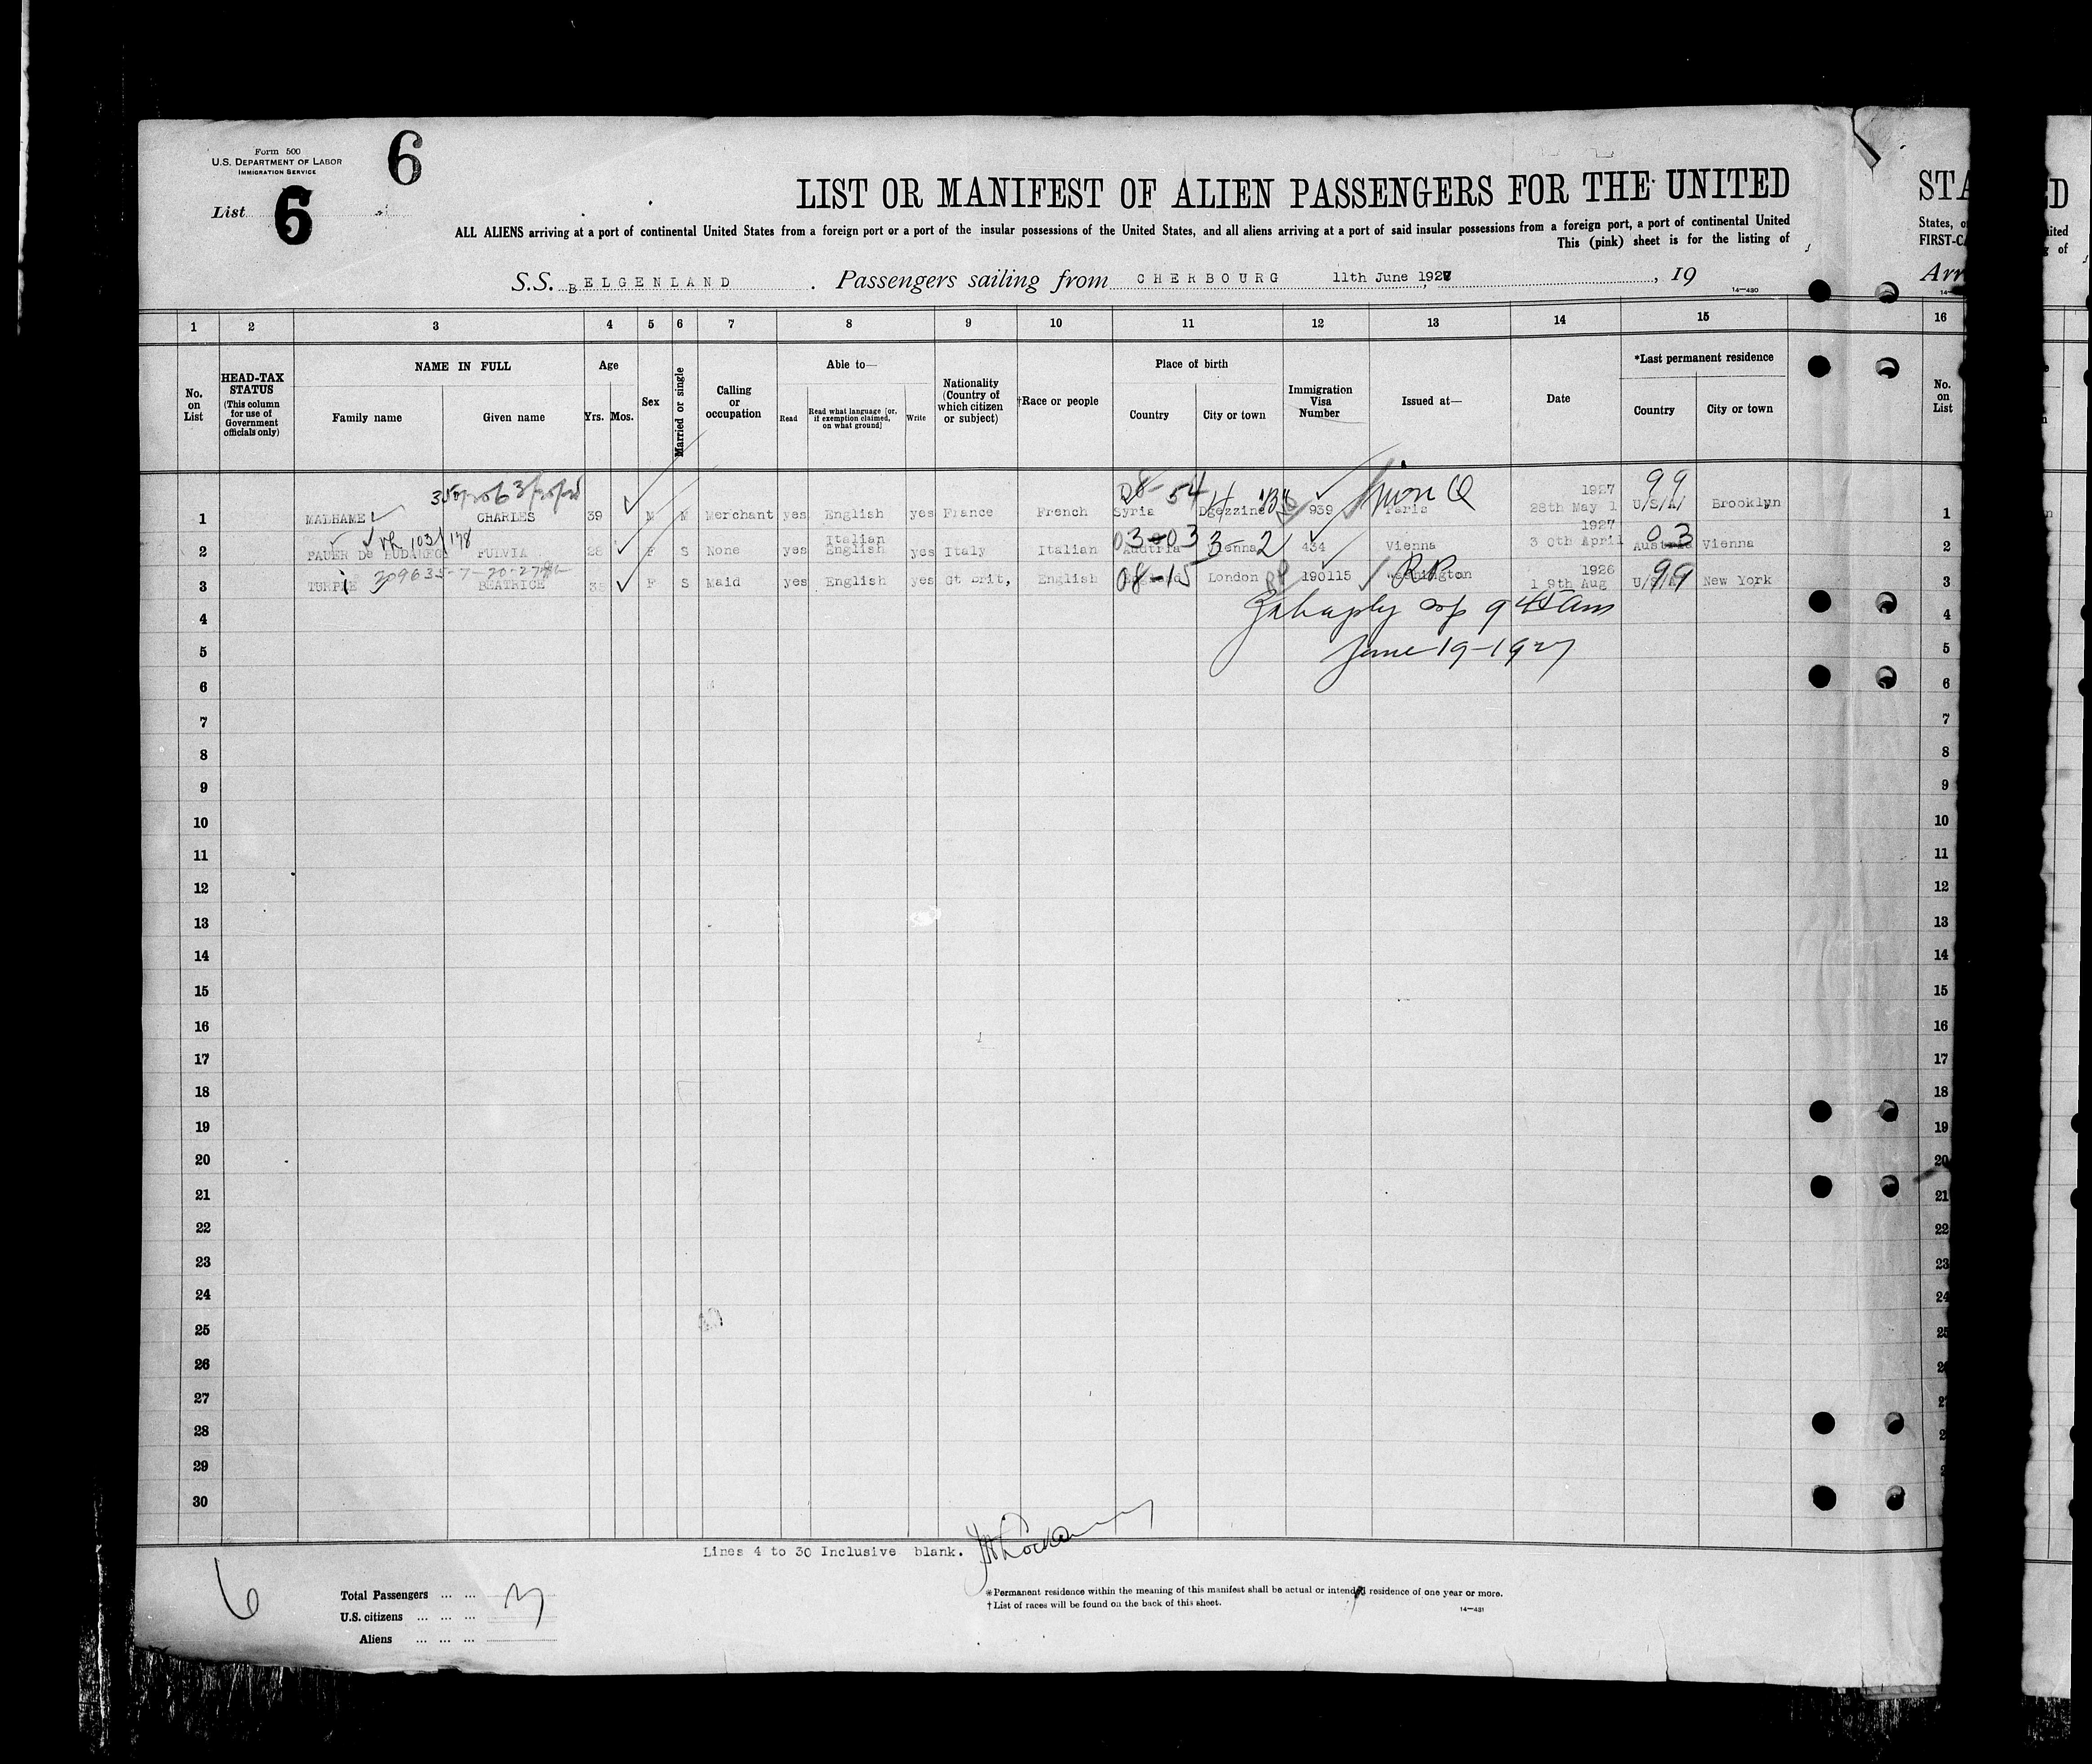 Form 500
U.S. DEPARTMENT OF LABOR
IMMIGRATION SERVICE
6
List 6
LIST OR MANIFEST OF ALIEN PASSENGERS FOR THE UNITED
STA
D
ALL ALIENS arriving at a port of continental United States from a foreign port or a port of the insular possessions of the United States, and all aliens arriving at a port of said insular possessions from a foreign port, a port of continental United
States, o
This (pink) sheet is for the listing of
FIRST-CA
S.S. BELGENLAND . Passengers sailing from CHERBOURG 11th June 1927 , 19
Arr
14—430
1 2 3 4 5 6 7 8 9 10 11 12 13 14 15 16
No. on List
HEAD-TAX STATUS (This column for use of Government officials only)
NAME IN FULL
Family name Given name
Age
Yrs. Mos.
Sex
Married or single
Calling or occupation
Able to—
Read
Read what language [or, if exemption claimed, on what ground]
Write
Nationality (Country of which citizen or subject)
†Race or people
Place of birth
Country City or town
Immigration Visa Number
Issued at—
Date
*Last permanent residence
Country City or town
No. on List
28-54 99
1927
1 CHARLES 39 M M Merchant yes English yes France French Syria Dgezzine 939 Paris 28th May U/S/A/ Brooklyn 1
VR 103/178 1927
Italian
2 PAUER De BUDAHEGY FULVIA 28 F S None yes English yes Italy Italian Austria 03-03 Vienna 3-2 434 Vienna 30th April Austria 03 Vienna 2
1926
3 BEATRICE F S Maid yes English yes Gt Brit, English 08-15 London 190115 Washington R.P. 19th Aug U/S/A/ 99 New York 3
9 45 am
June 19-1927
4 4
5 5
6 6
7 7
8 8
9 9
10 10
11 11
12 12
13 13
14 14
15 15
16 16
17 17
18 18
19 19
20 20
21 21
22 22
23 23
24 24
25 25
26
27
28
29
30
Lines 4 to 30 Inclusive blank.
6
Total Passengers ... ... 3
U.S. citizens ... ... ...
Aliens ... ... ...
*Permanent residence within the meaning of this manifest shall be actual or intended residence of one year or more.
†List of races will be found on the back of this sheet.
14—431